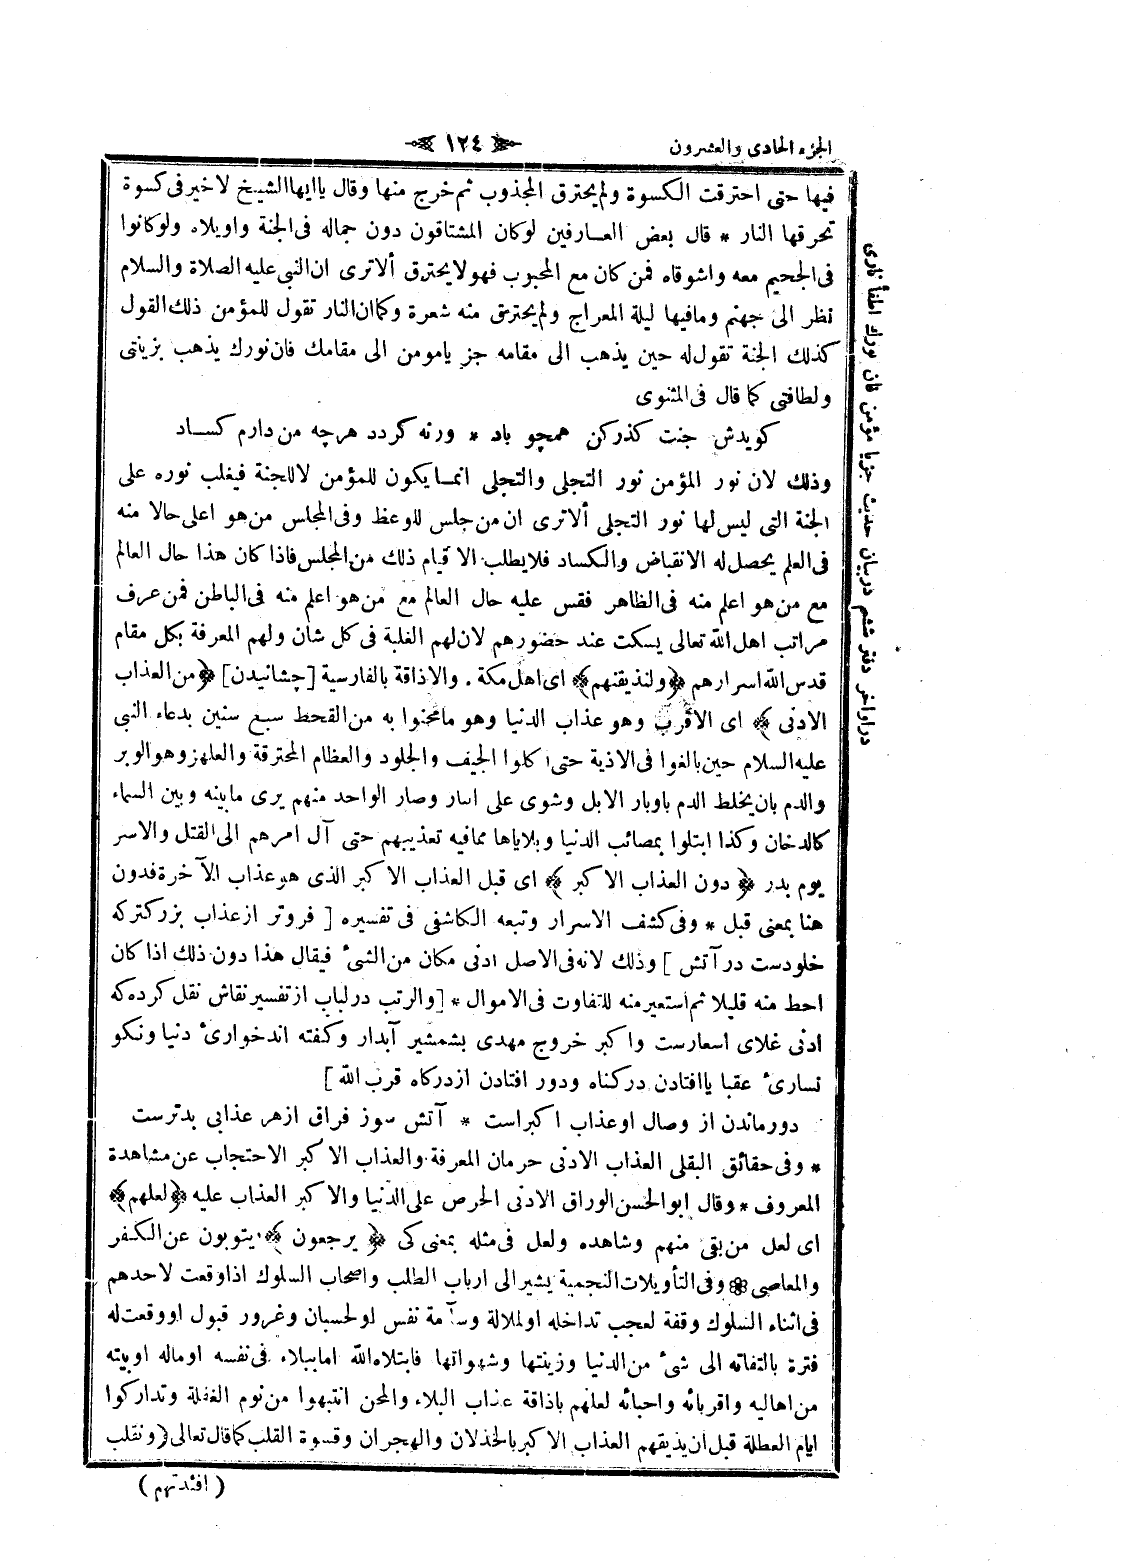 الجزء الحادى والعشرون
١٢٤
فيها حتى احترقت الكسوة ولم يحترق المجذوب ثم خرج منها وقال يا ايها الشيخ لاخير فى كسوة
تحرقها النار * قال بعض العارفين لوكان المشتاقون دون جماله فى الجنة واويلاه ولوكانوا
فى الجحيم معه واشوقاه فمن كان مع المحبوب فهو لا يحترق ألاترى ان النبى عليه الصلاة والسلام
نظر الى جهنم ومافيها ليلة المعراج ولم يحترق منه شعرة وكما ان النار تقول للمؤمن ذلك القول
كذلك الجنة تقول له حين يذهب الى مقامه جز يا مومن الى مقامك فان نورك يذهب بزينتى
ولطافتى كما قال فى المثنوى
كويدش جنت كذركن همچو باد * ورنه كردد هرچه من دارم كساد
وذلك لان نور المؤمن نور التجلى والتجلى انما يكون للمؤمن لا للجنة فيغلب نوره على
الجنة التى ليس لها نور التجلى ألاترى ان من جلس للوعظ وفى المجلس من هو اعلى حالا منه
فى العلم يحصل له الانقباض والكساد فلا يطلب الا قيام ذلك من المجلس فاذا كان هذا حال العالم
مع من هو اعلم منه فى الظاهر فقس عليه حال العالم مع من هو اعلم منه فى الباطن فمن عرف
مراتب اهل الله تعالى يسكت عند حضورهم لان لهم الغلبة فى كل شان ولهم المعرفة بكل مقام
قدس الله اسرارهم ﴿ولنذيقنهم﴾ اى اهل مكة . والاذاقة بالفارسية [چشانيدن] ﴿من العذاب
الادنى﴾ اى الاقرب وهو عذاب الدنيا وهو مامحنوا به من القحط سبع سنين بدعاء النبى
عليه السلام حين بالغوا فى الاذية حتى اكلوا الجيف والجلود والعظام المحترقة والعلهز وهو الوبر
والدم بان يخلط الدم باوبار الابل وشوى على النار وصار الواحد منهم يرى مابينه وبين السماء
كالدخان وكذا ابتلوا بمصائب الدنيا وبلاياها مما فيه تعذيبهم حتى آل امرهم الى القتل والاسر
يوم بدر ﴿دون العذاب الاكبر﴾ اى قبل العذاب الاكبر الذى هو عذاب الآخرة فدون
هنا بمعنى قبل * وفى كشف الاسرار وتبعه الكاشفى فى تفسيره [ فروتر از عذاب بزركتر كه
خلودست در آتش ] وذلك لانه فى الاصل ادنى مكان من الشىٔ فيقال هذا دون ذلك اذا كان
احط منه قليلا ثم استعير منه للتفاوت فى الاموال * [والرتب در لباب از تفسير نقاش نقل كرده كه
ادنى غلاى اسعارست واكبر خروج مهدى بشمشير آبدار وكفته اند خوارىٔ دنيا ونكو
نسارىٔ عقبا يا افتادن در كناه ودور افتادن از دركاه قرب الله ]
دور ماندن از وصال او عذاب اكبر است * آتش سوز فراق از هر عذابى بدترست
* وفى حقائق البقلى العذاب الادنى حرمان المعرفة والعذاب الاكبر الاحتجاب عن مشاهدة
المعروف * وقال ابو الحسن الوراق الادنى الحرص على الدنيا والاكبر العذاب عليه ﴿لعلهم﴾
اى لعل من بقى منهم وشاهده ولعل فى مثله بمعنى كى ﴿ يرجعون ﴾ يتوبون عن الكفر
والمعاصى * وفى التأويلات النجمية يشير الى ارباب الطلب واصحاب السلوك اذا وقعت لاحدهم
فى اثناء السلوك وقفة لعجب تداخله او لملالة وسآمة نفس او لحسبان وغرور قبول او وقعت له
فترة بالتفاته الى شىٔ من الدنيا وزينتها وشهواتها فابتلاه الله اما ببلاء فى نفسه او ماله او بيته
من اهاليه واقربائه واحبائه لعلهم باذاقة عذاب البلاء والمحن انتبهوا من نوم الغفلة وتداركوا
ايام العطلة قبل ان يذيقهم العذاب الاكبر بالخذلان والهجران وقسوة القلب كما قال تعالى (ونقلب
( افئدتهم )
در اواخر دفتر ششم در بيان حديث جز يا مؤمن فان نورك اطفأ نارى